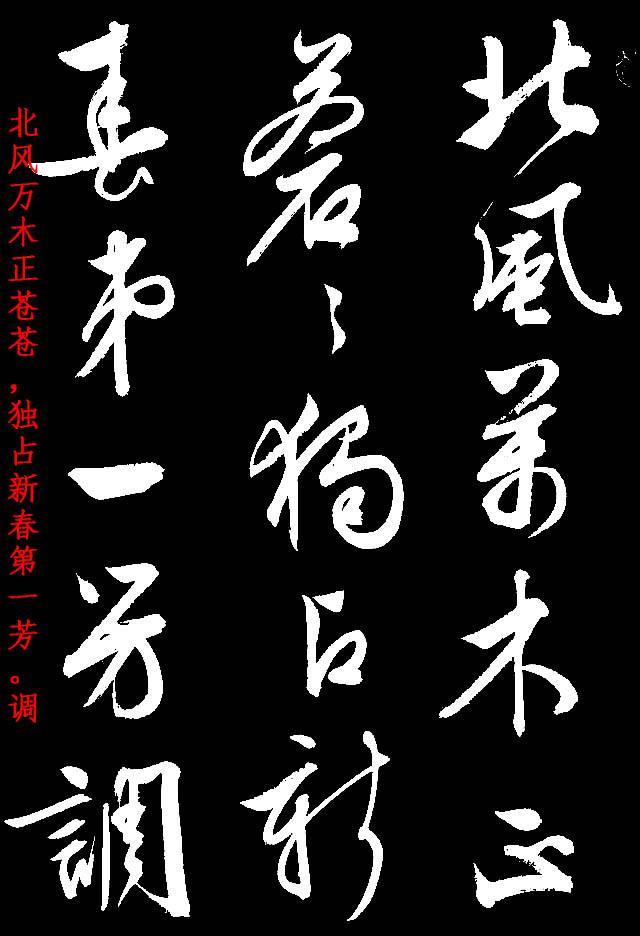 北風萬木正
蒼〻獨占新
春第一芳調
北风万木正苍苍，独占新春第一芳。调